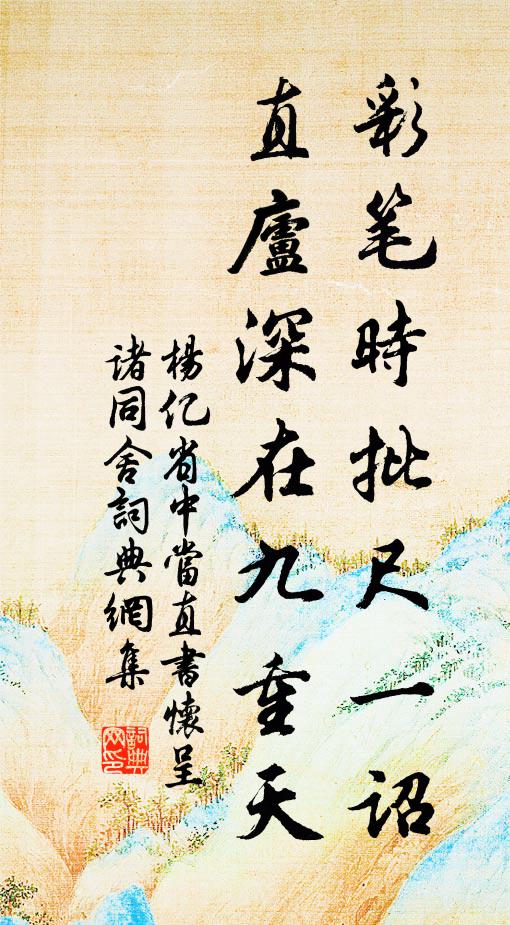 彩笔時批尺一诏
直廬深在九重天
楊亿省中當直書懷呈
诸同舍詞典網集
詞典网印